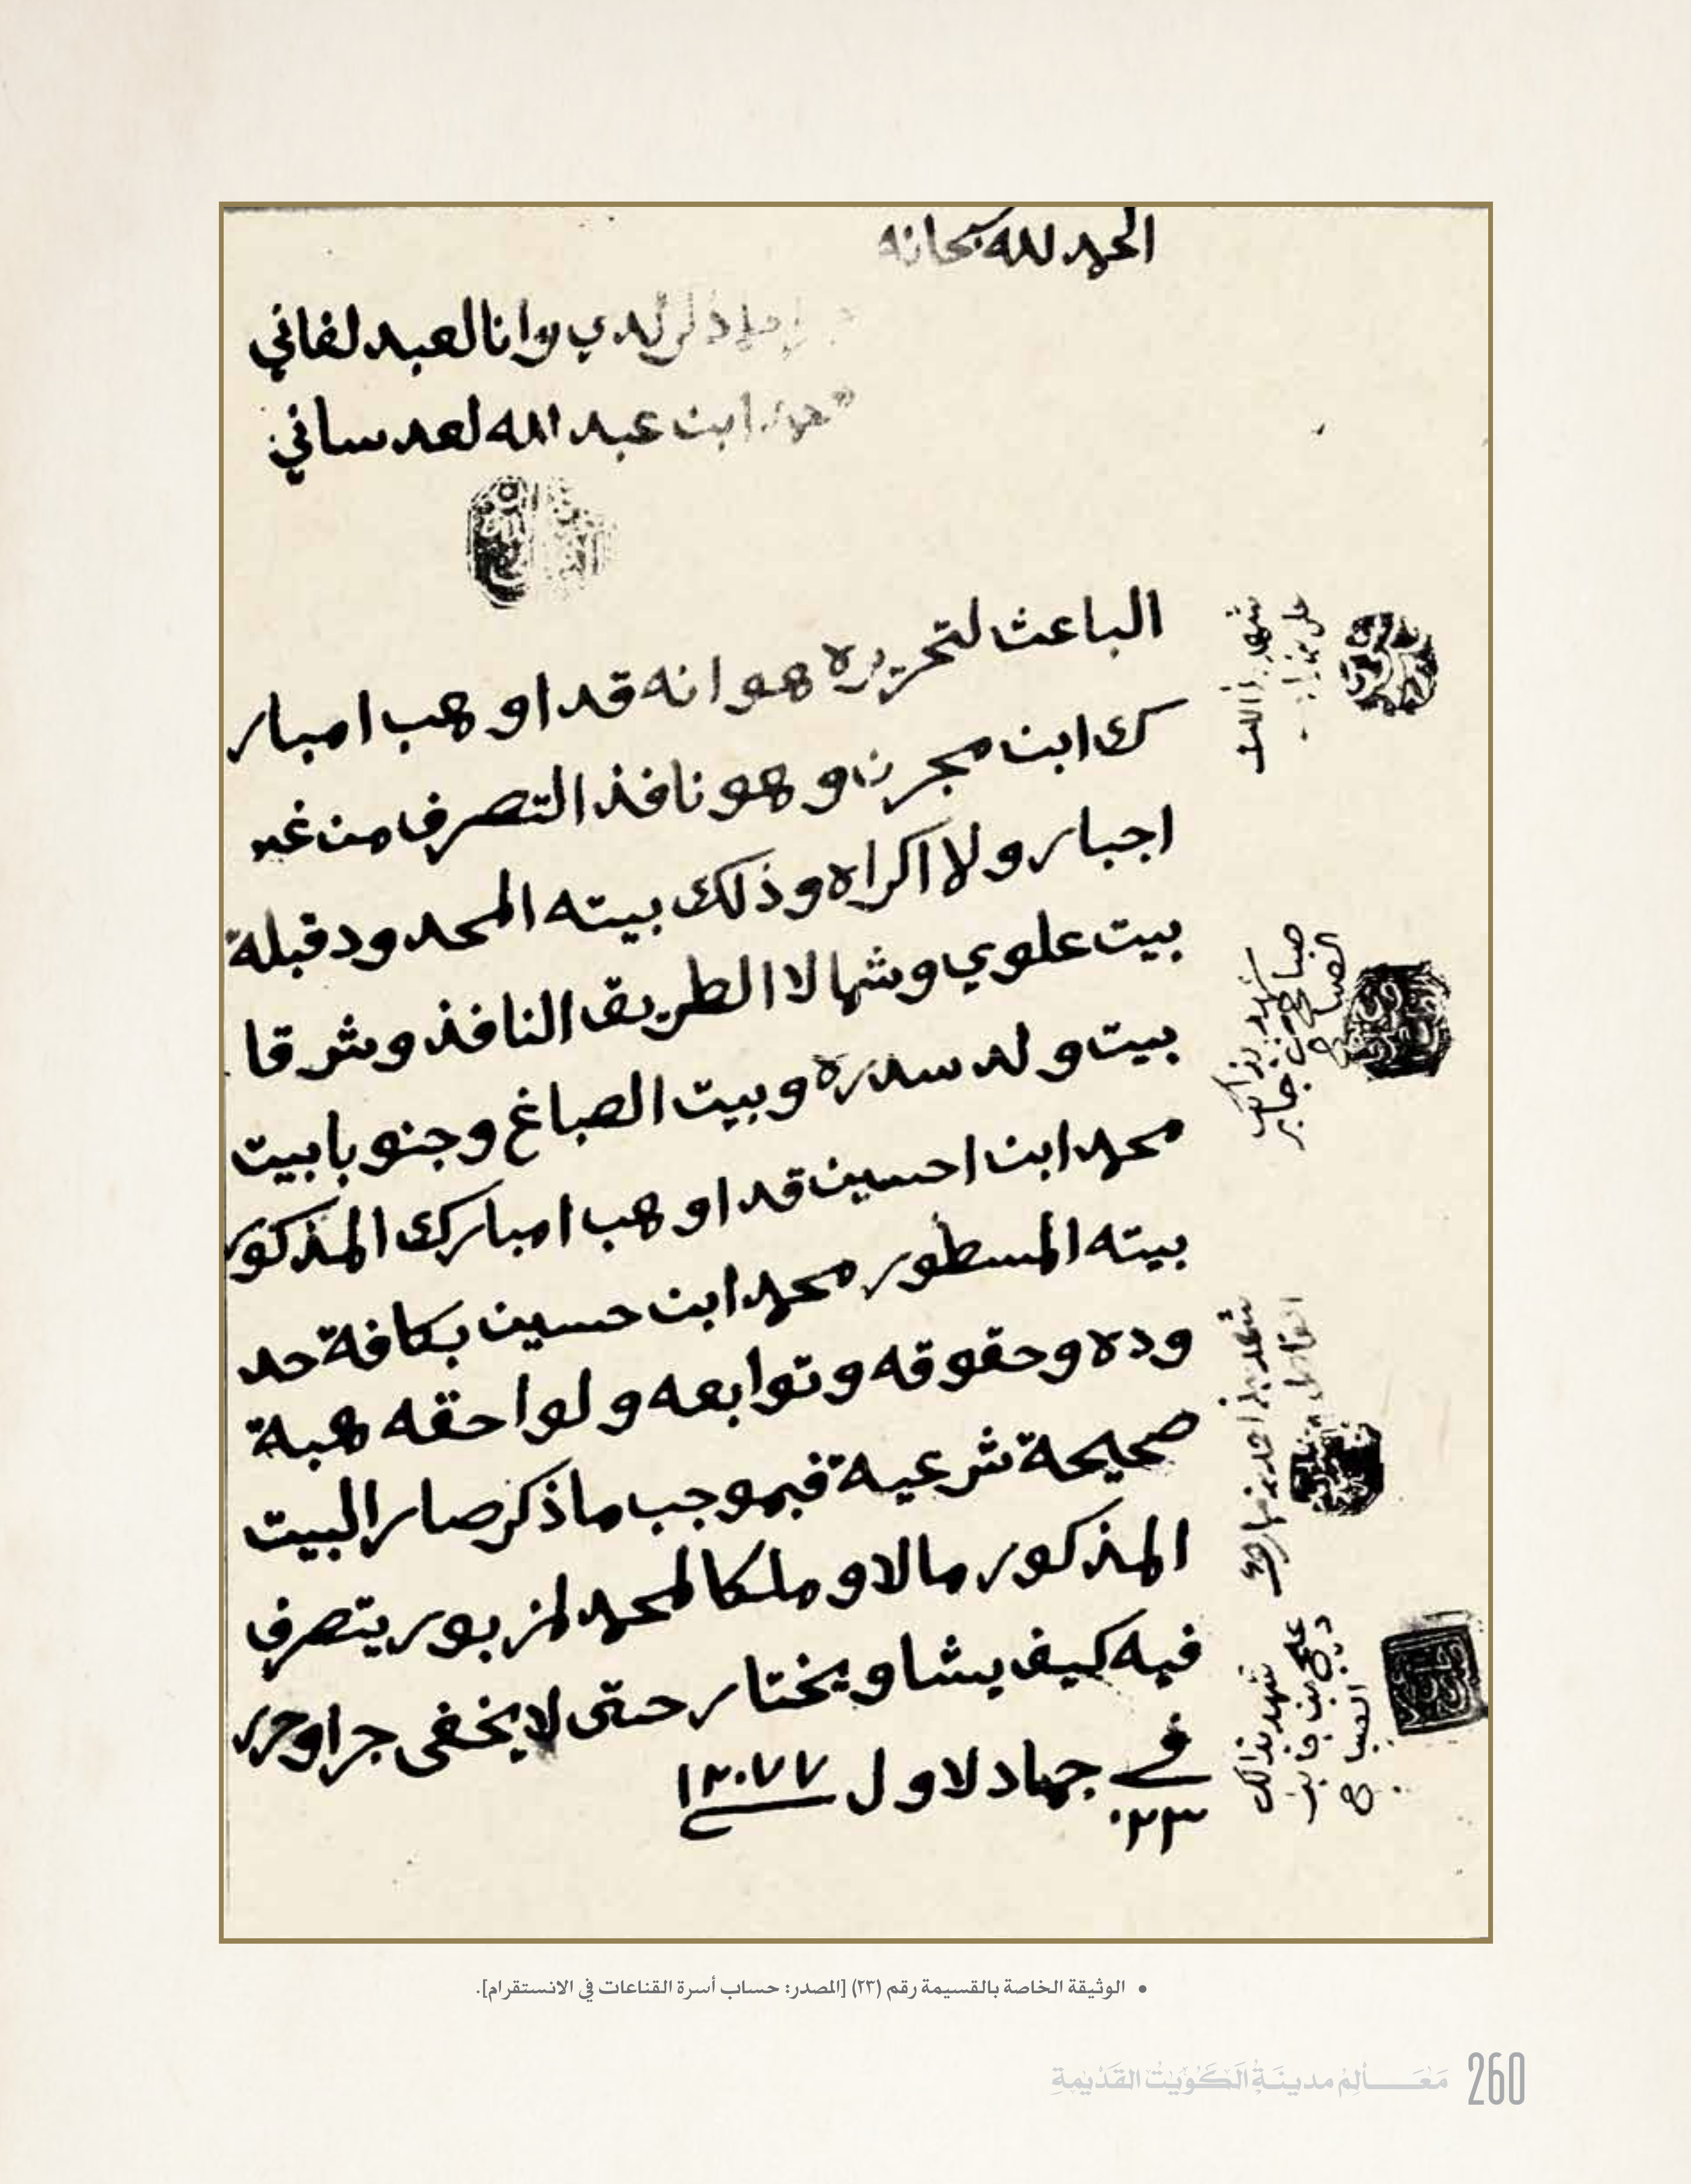 الحمد لله سبحانه
لدي وانا العبد لفاني
ابن عبد الله لعدساني
الباعث لتحريره هو انه قد اوهب امبار
ك ابن مجرن وهو نافذ التصرف من غير
اجبار ولا اكراه وذلك بيته المحدود قبلة
بيت علوي وشمالا الطريق النافذ وشرقا
بيت ولد سدره وبيت الصباغ وجنوبا بيت
محمد ابن احسين قد اوهب امبارك المذكور
بيته المسطور محمد ابن حسين بكافة حد
وده وحقوقه وتوابعه ولواحقه هبة
صحيحة شرعية فبموجب ما ذكر صار البيت
المذكور مالا وملكا لمحمد لمزبور يتصرف
فيه كيف يشا ويختار حتى لا يخفى جرا وحرر
في جماد لاول ١٣٠٧٧
٢٣
شهد بذالك
علي بن
شهد بذالك
صباح بن جابر
الصباح
شهد بذالك
علي بن
الصباح
• الوثيقة الخاصة بالقسيمة رقم (٢٣) [المصدر: حساب أسرة القناعات في الانستقرام].
260 مَعَالِم مدينَة الكَوَيت القَديمة